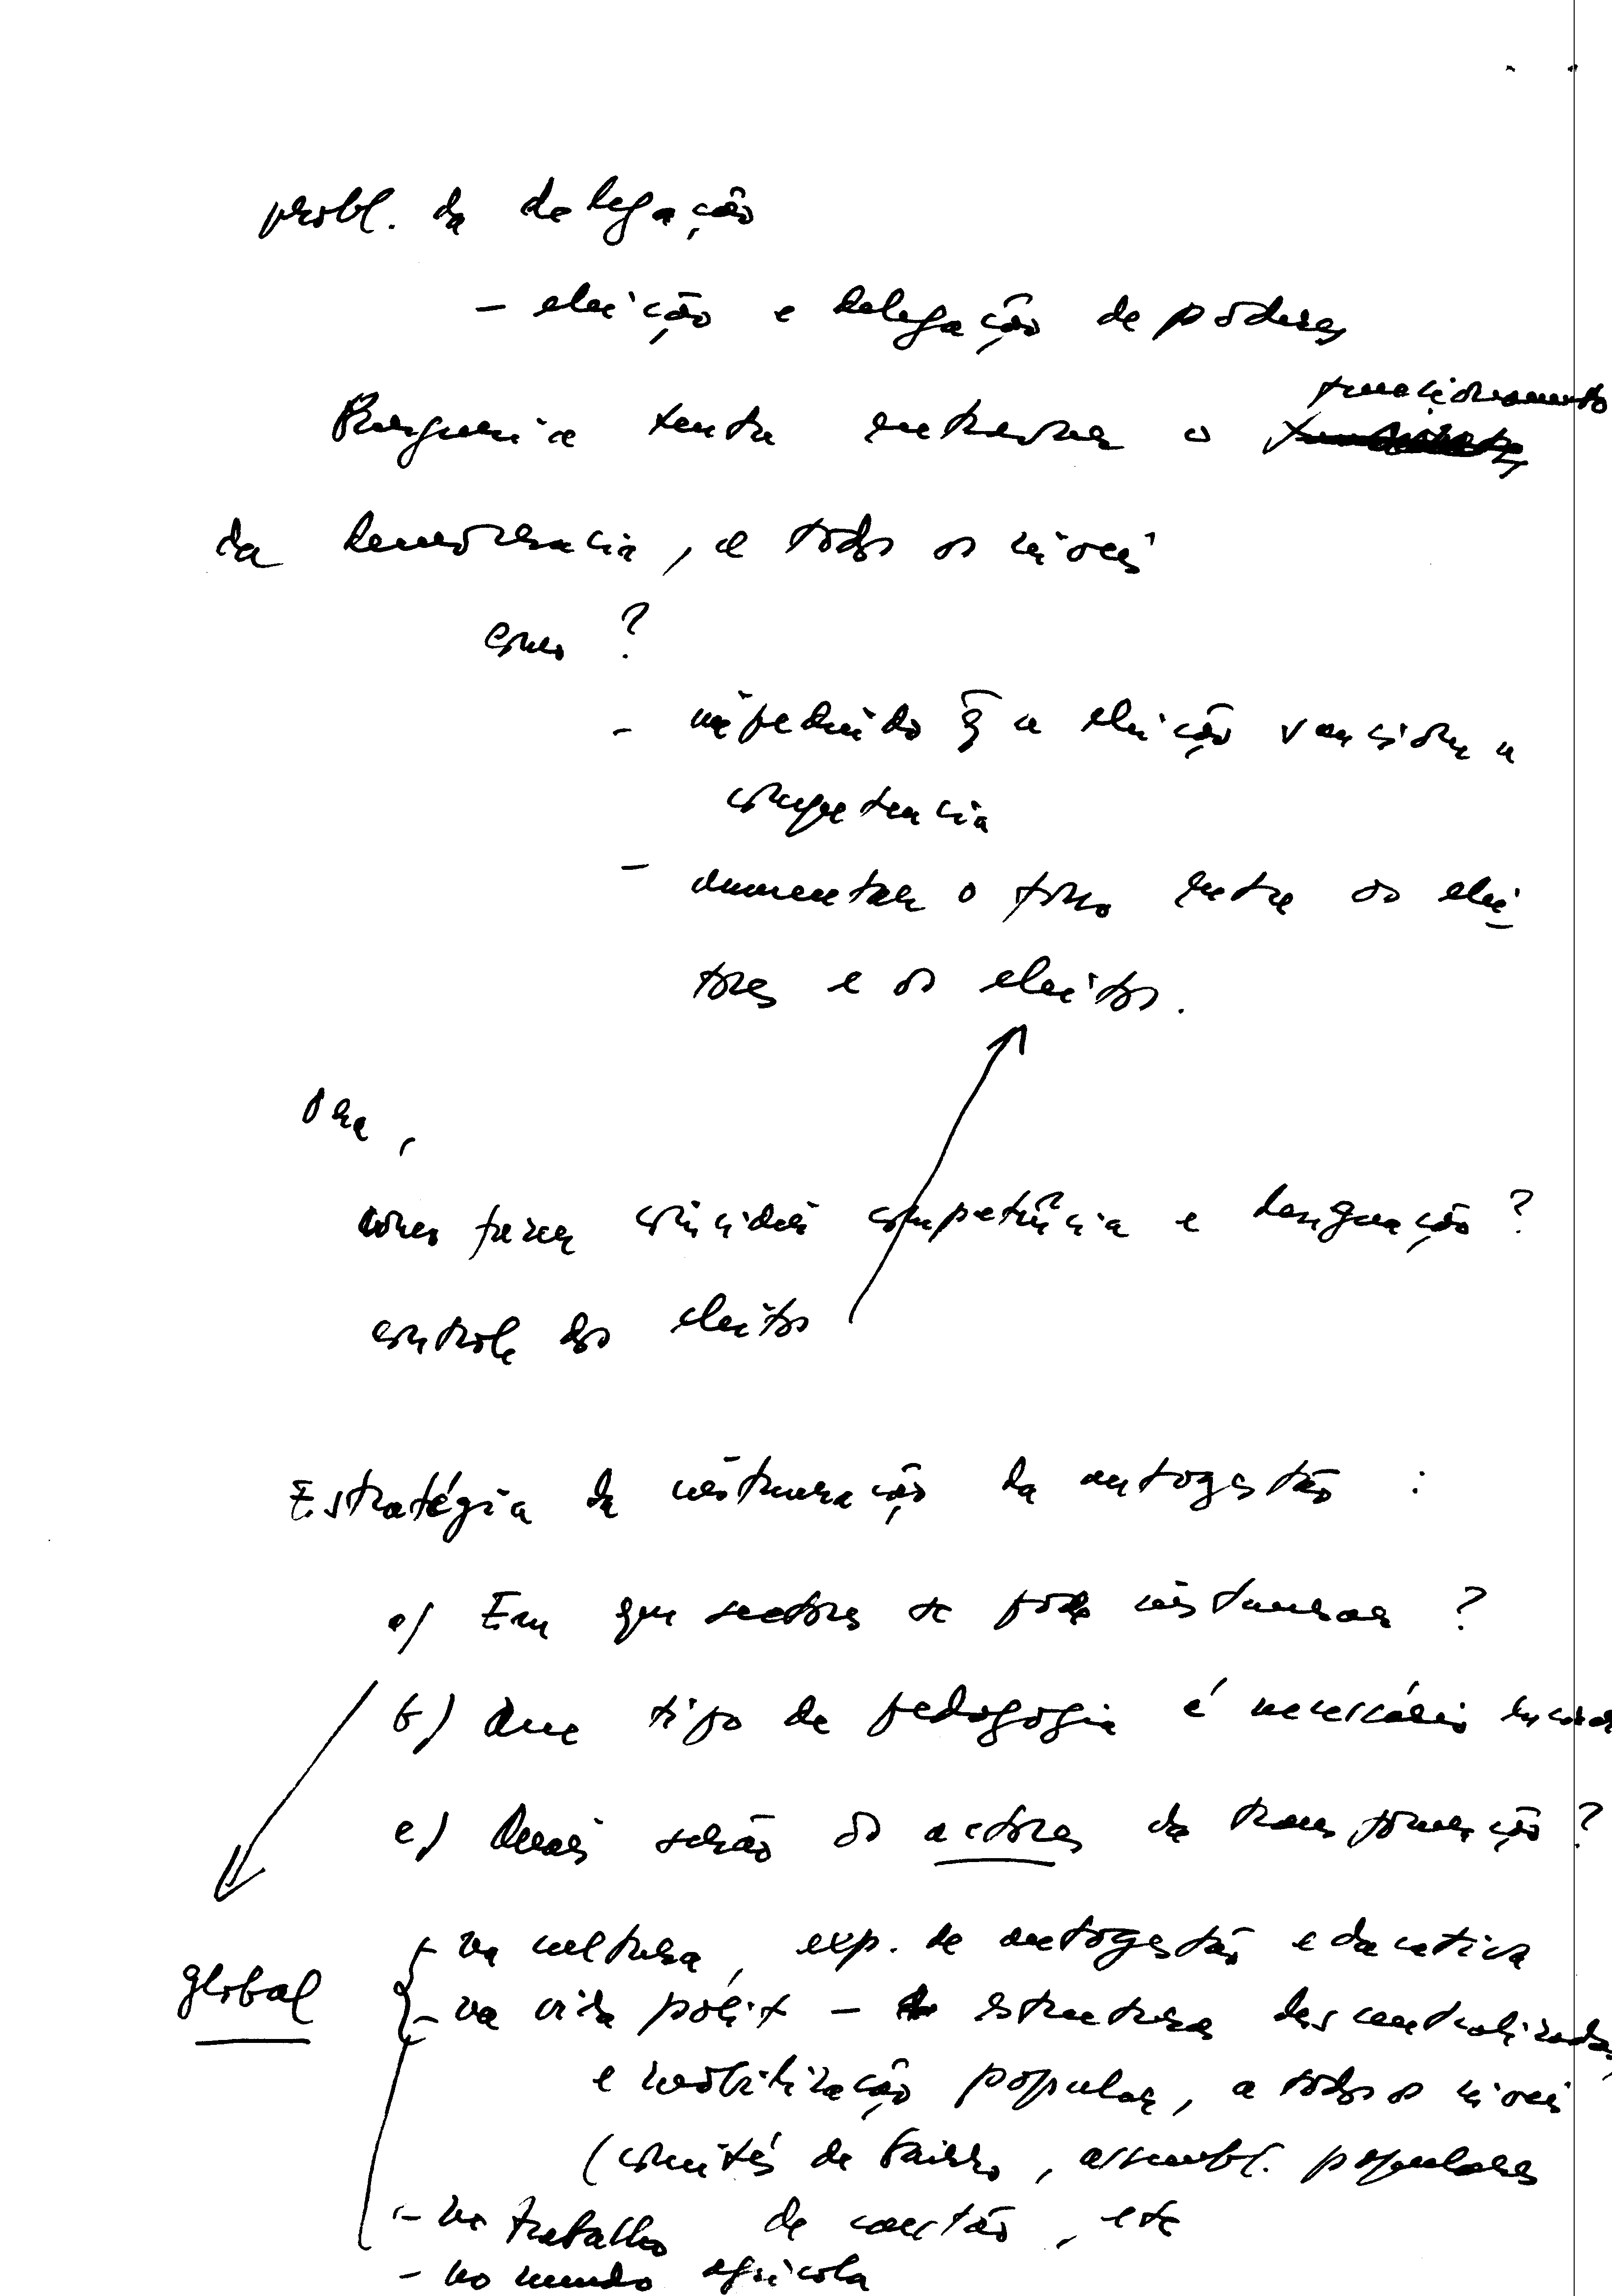 probl. da delegação
- eleição e delegação de poderes
Burguesia tenta entravar o funcionamento
da democracia, a todos os níveis
como ?
- impedindo q̃ a eleição sancione a
competencia
- aumentar o fosso entre os elei-
tores e os eleitos.
Ora,
como fazer coincidir competência e designação ?
controle dos eleitos
Estratégia da instauração da autogestão :
a) Em que sectores se pode instaurar ?
b) Que tipo de pedagogia é necessário
c) Quais serão os actores da transformação ?
global
- na cultura, exp. de autogestão educativa
- na vida polít - estruturas descentralizadas
e mobilização popular, a todos os níveis
(comités de bairro, assembl. populares
- no trabalho de gestão, etc
- no mundo agrícola